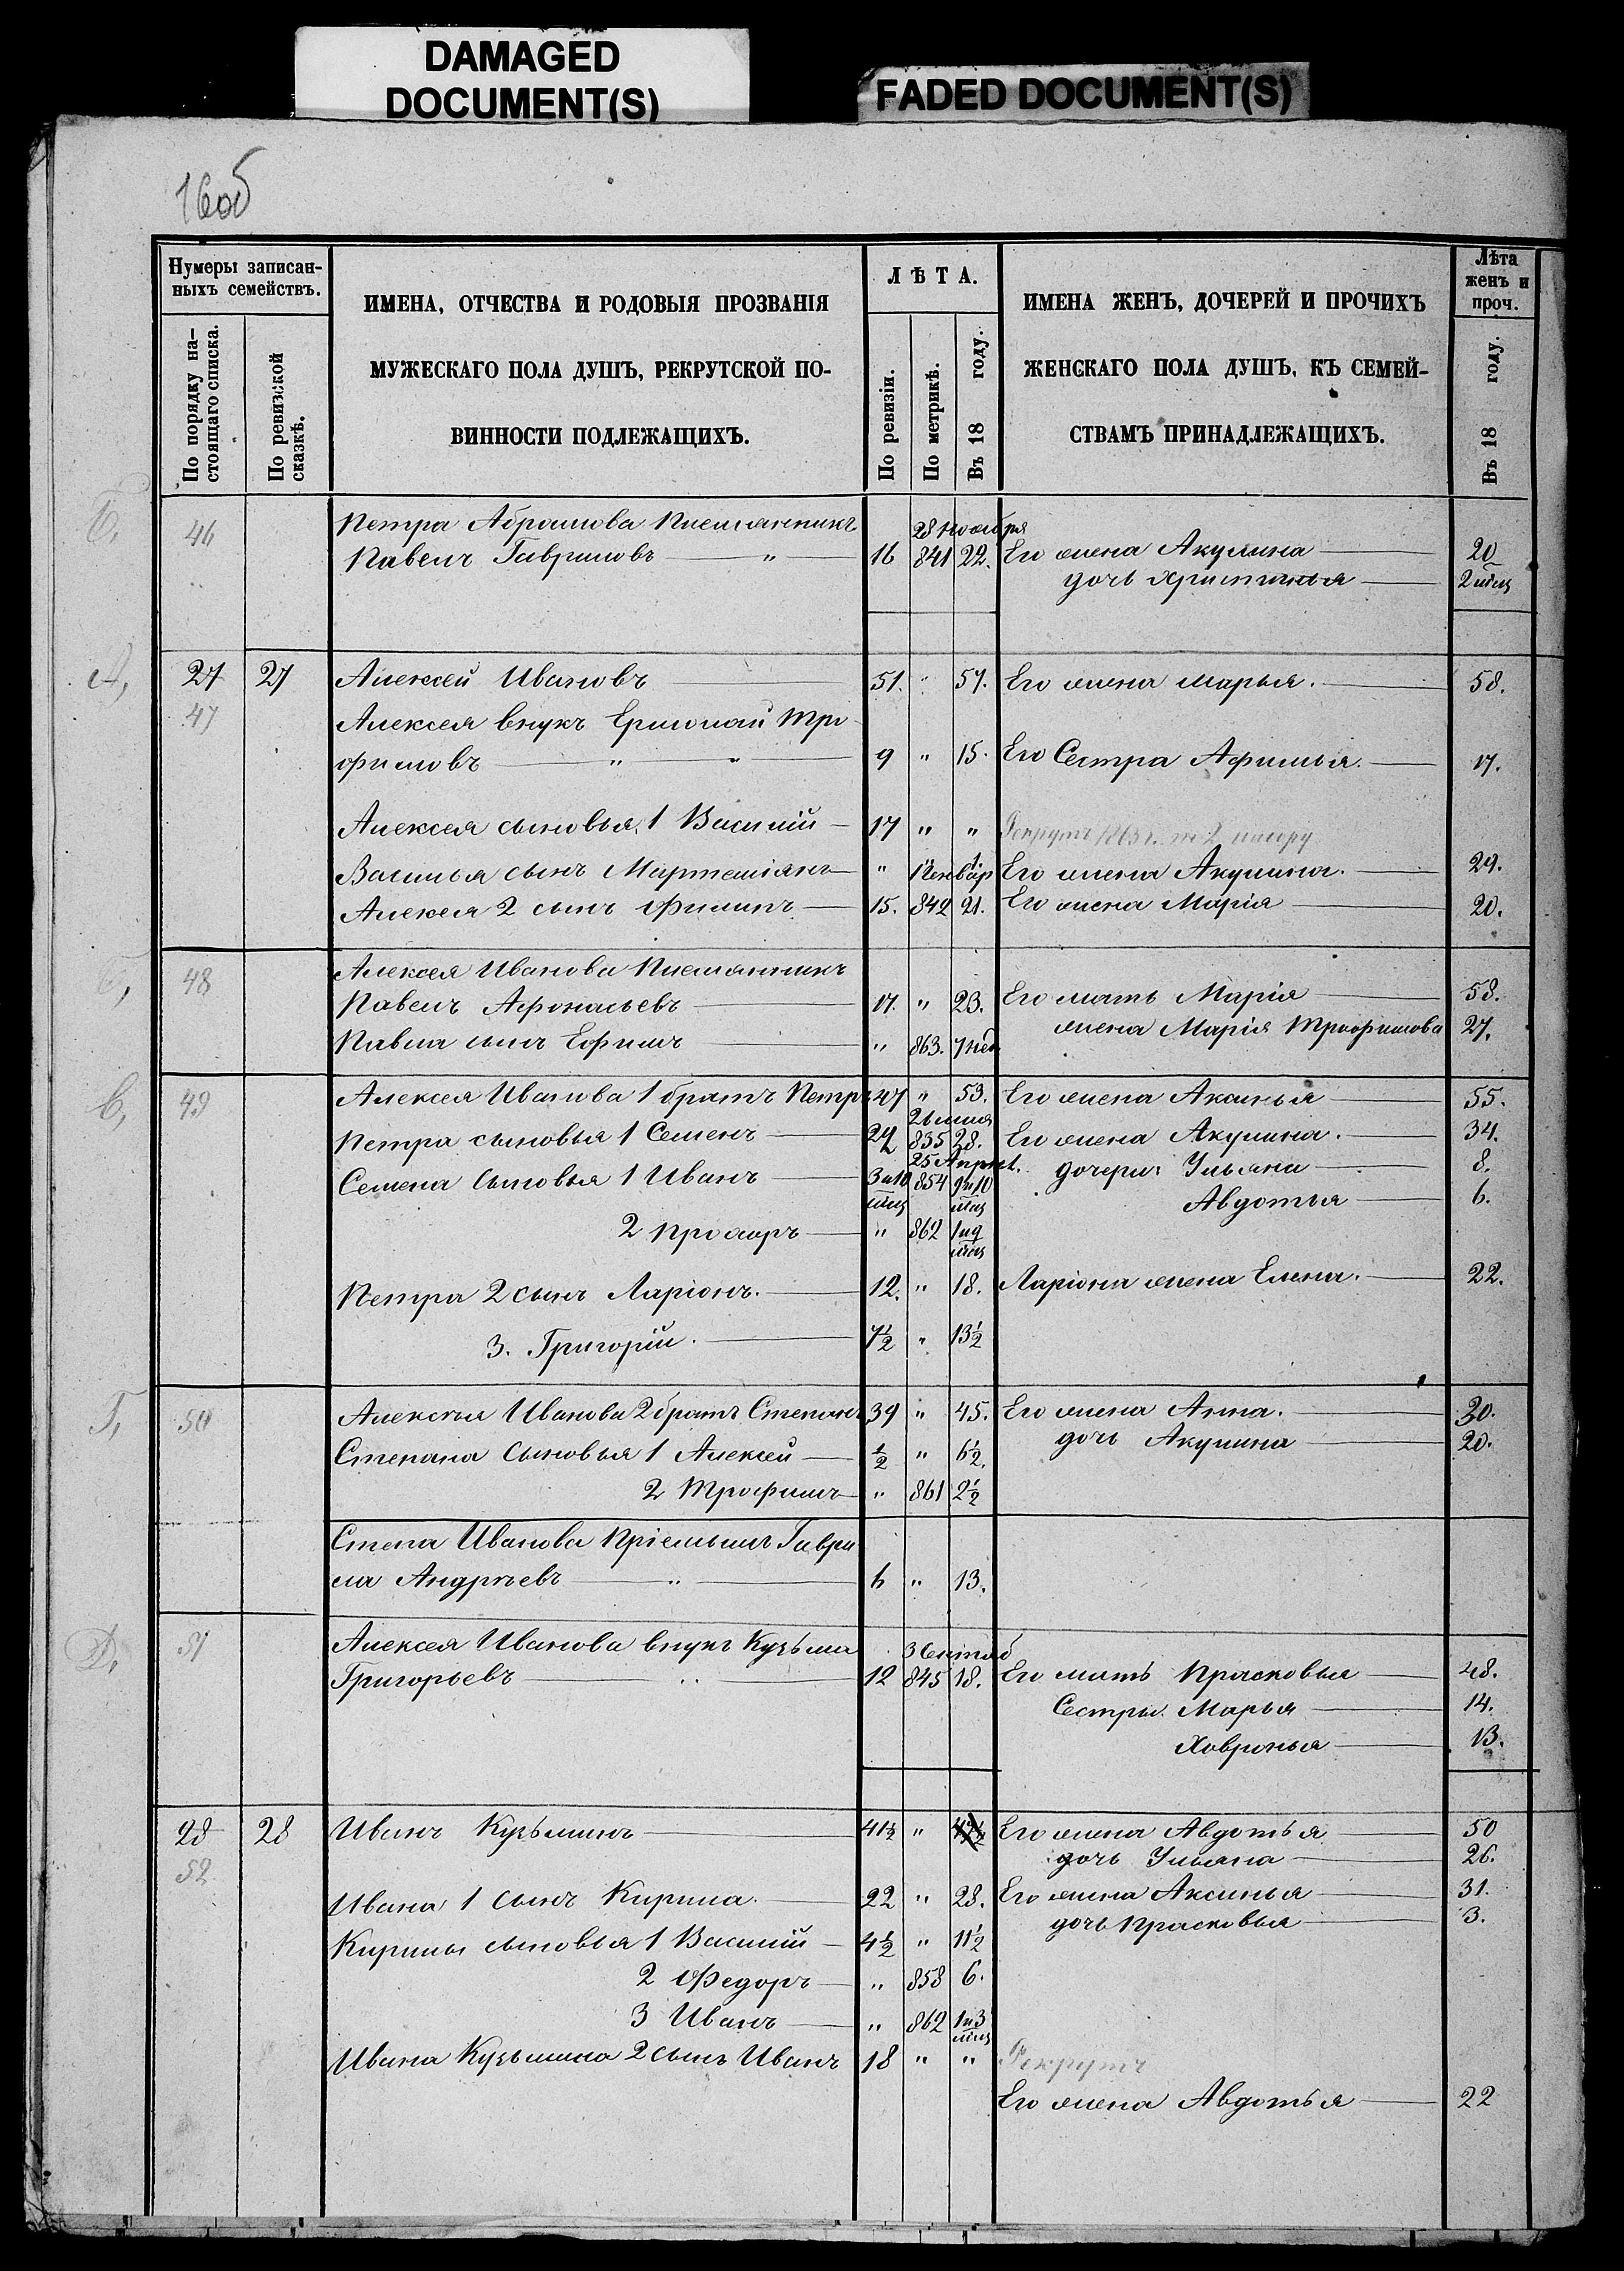 DAMAGED
DOCUMENT(S)
FADED DOCUMENT(S)
16об
Нумеры записан-
ныхъ семействъ.
По порядку на-
стоящаго списка.
По ревизской
сказкѣ.
ИМЕНА, ОТЧЕСТВА И РОДОВЫЯ ПРОЗВАНІЯ
МУЖЕСКАГО ПОЛА ДУШЪ, РЕКРУТСКОЙ ПО-
ВИННОСТИ ПОДЛЕЖАЩИХЪ.
ЛѢТА.
По ревизіи.
По метрикѣ.
Въ 18 году.
ИМЕНА ЖЕНЪ, ДОЧЕРЕЙ И ПРОЧИХЪ
ЖЕНСКАГО ПОЛА ДУШЪ, КЪ СЕМЕЙ-
СТВАМЪ ПРИНАДЛЕЖАЩИХЪ.
Лѣта
женъ и
проч.
Въ 18 году.
Б, 46 Петра Абрамова Племянникъ 28 ноября
Павелъ Гавриловъ — " 16 841 22. Его жена Акулина — 20
дочь Христинья — 2 мѣц
А, 27 27 Алексей Ивановъ — 51. " 57. Его жена Марья. — 58.
47 Алексея внукъ Ермолай Тро
фимовъ — " — " 9 " 15. Его Сестра Афимья. — 17.
Алексея сыновья. 1 Василій — 17 " " Рекрутъ 1863 г.
Василья сынъ Мартемьянъ — " 1 Генвар Его жена Акулина. — 29.
Алексея 2 сынъ Филипъ — 15. 842 21. Его жена Марія — 20.
48 Алексея Иванова Племянникъ
Павелъ Афонасьевъ — 17. " 23. Его мать Марія — 58.
Павла сынъ Ефимъ — " 863. 7 нед. жена Марія Трофимова 27.
В, 49 Алексея Иванова 1 братъ Петръ 47 " 53. Его жена Аксинья — 55.
Петра сыновья 1 Семенъ — 22 835 28. Его жена Акулина. — 34.
Семена сыновья 1 Иванъ — 3 и 10 мѣц 25 Апрѣл. 854 9 и 10 мѣц дочери: Ульяна — 8.
Авдотья — 6.
2 Прохоръ — " 862 1 и 9 мѣц
Петра 2 сынъ Ларіонъ. — 12. " 18. Ларіона жена Елена. — 22.
3. Григорій. — 7½ " 13½
Г, 50 Алексѣя Иванова 2 братъ Степанъ 39 " 45. Его жена Анна. — 30.
Степана сыновья 1 Алексей — ½ " 6½. дочь Акулина — 20.
2 Трофимъ — " 861 2½
Степа Иванова Пріемышъ Гаври
ла Андрѣевъ — " — 6 " 13.
Д, 51 Алексея Иванова внукъ Кузьма 3 Сентяб
Григорьевъ — " — 12 845 18. Его мать Прасковья — 48.
Сестры Марья — 14.
Ховронья — 13.
28 28 Иванъ Кузьминъ — 41½ " 47½ Его жена Авдотья — 50
52 дочь Ульяна — 26.
Ивана 1 сынъ Кирила. — 22 " 28. Его жена Аксинья — 31.
Кирилы сыновья 1 Василій — 4½ " 11½ дочь Прасковья — 3.
2 Федоръ — " 858 6.
3 Иванъ — " 862 1 и 3 мѣц
Ивана Кузьмина 2 сынъ Иванъ 18 " " Рекрутъ
Его жена Авдотья — 22